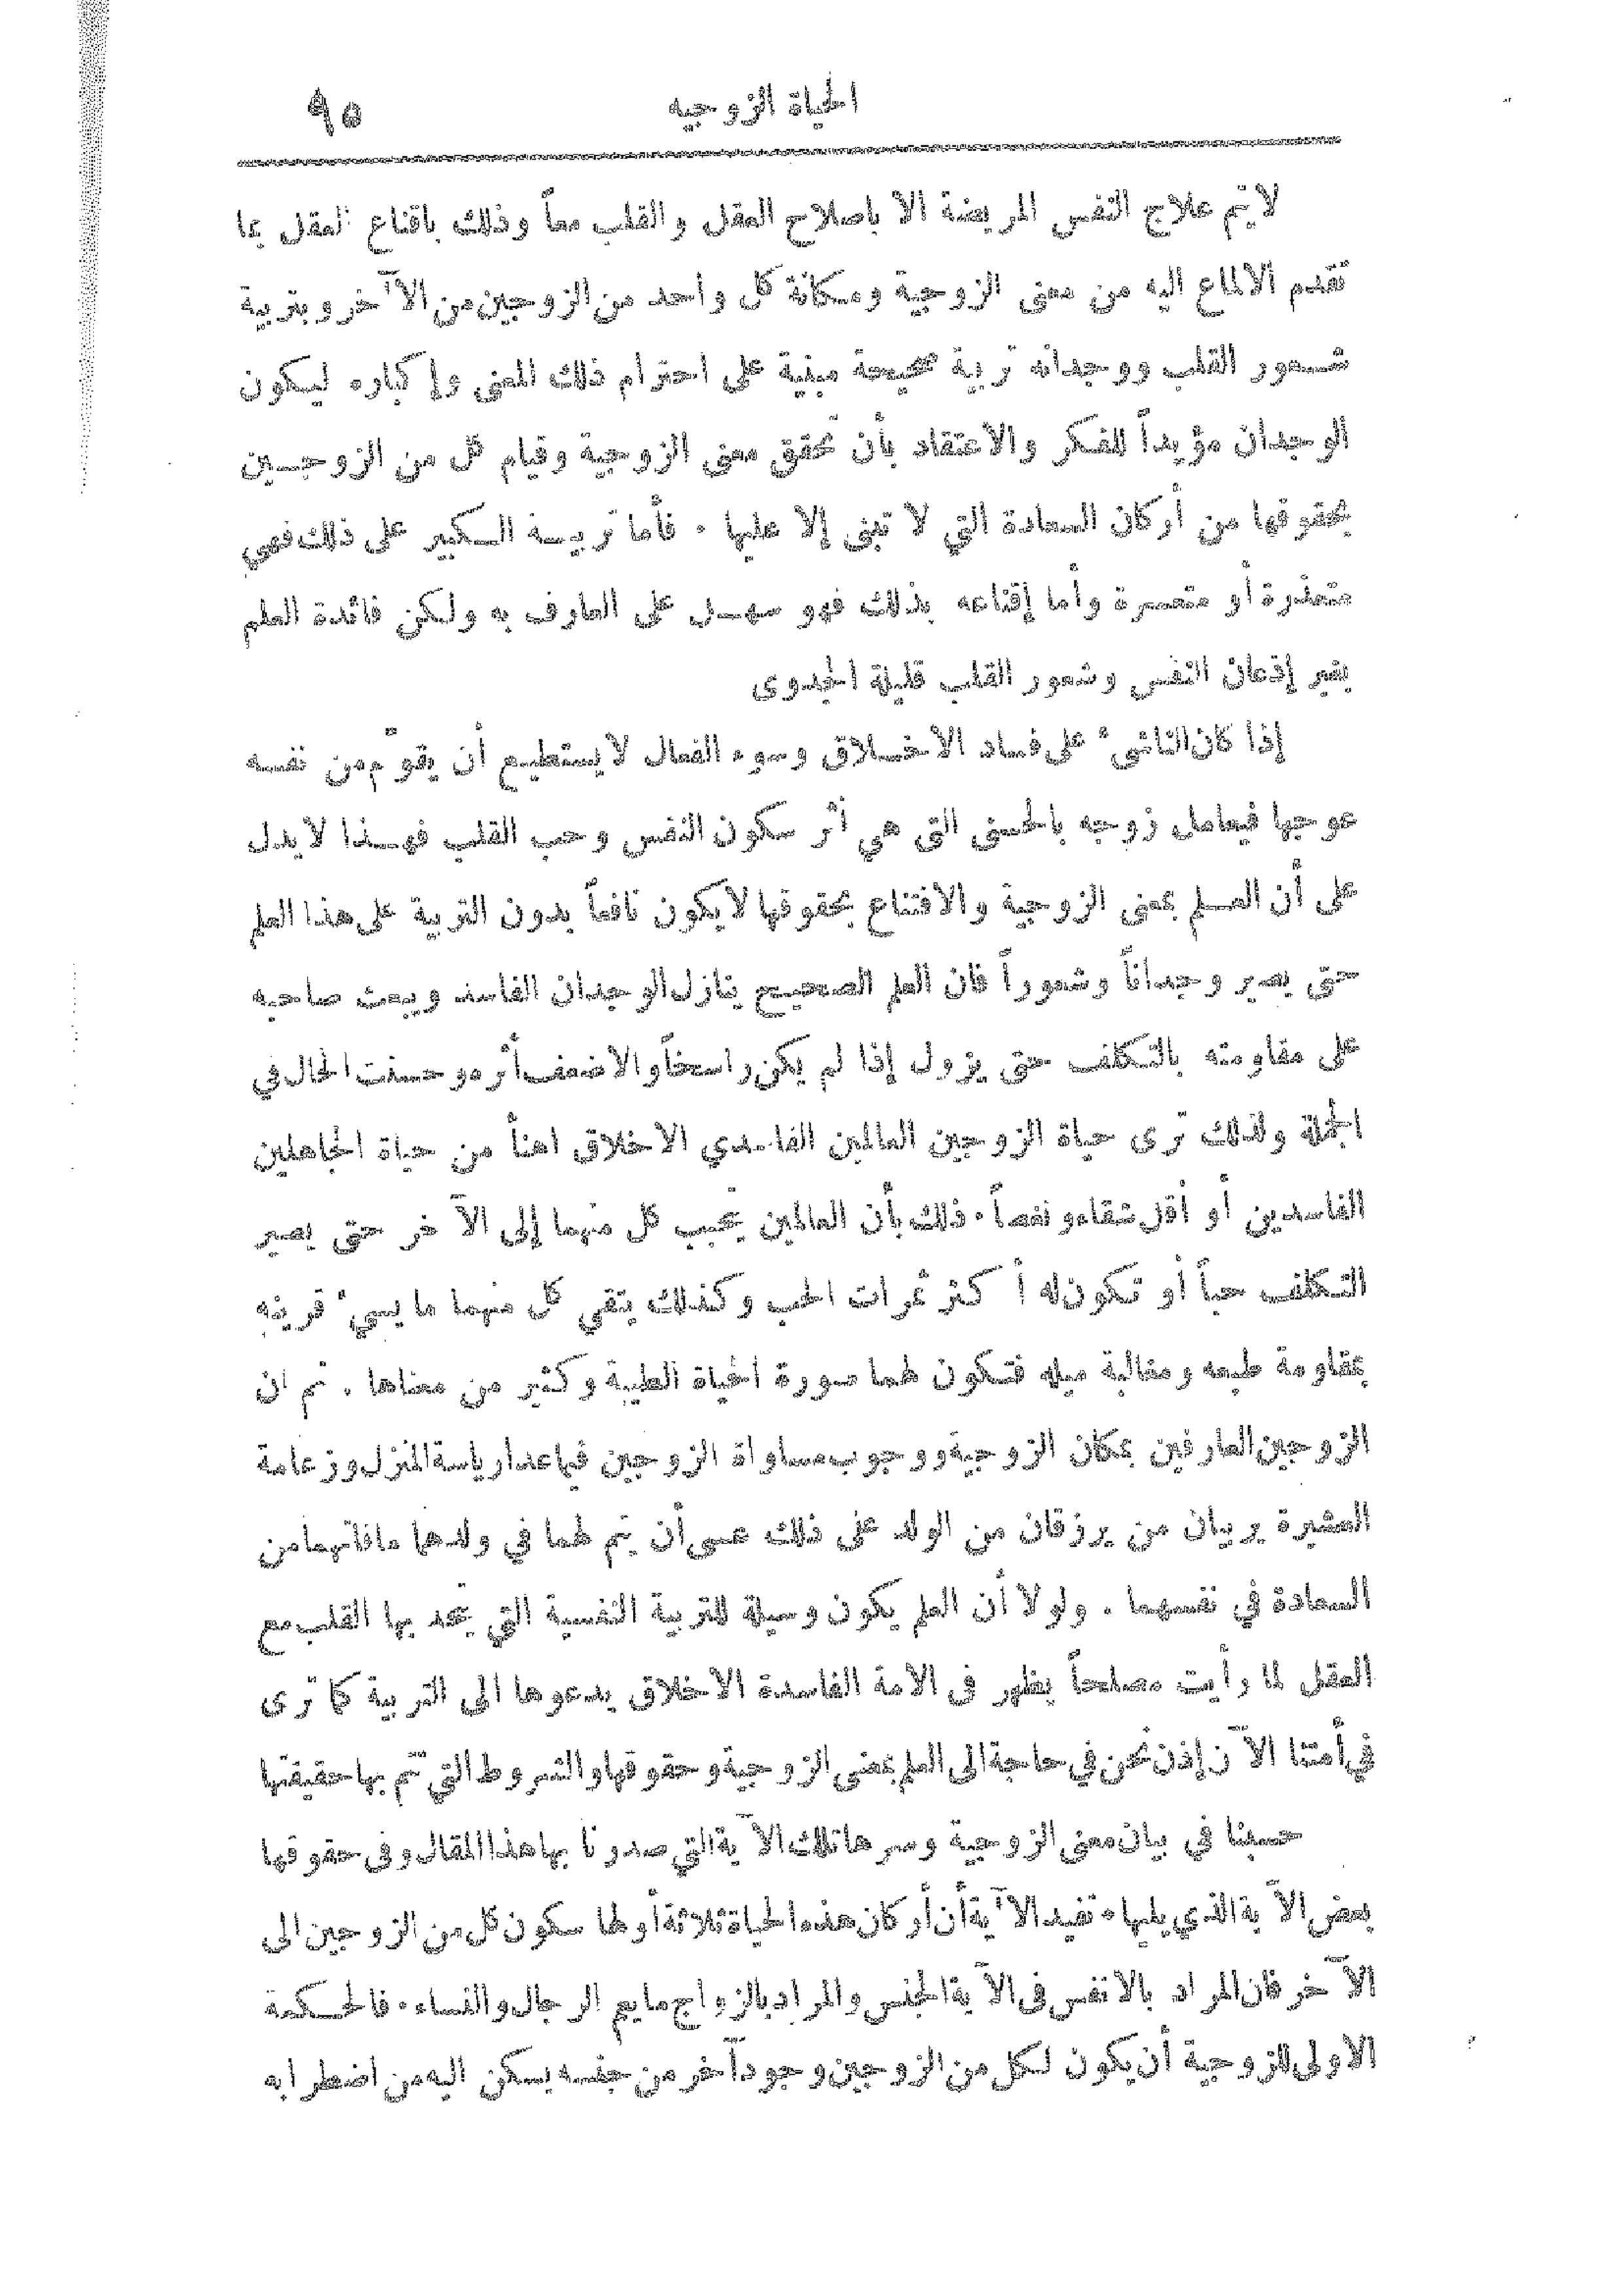 الحياة الزوجيه ٩٥
لا يتم علاج النفس المريضة الا باصلاح العقل والقلب معاً وذلك باقناع العقل بما
تقدم الالماع اليه من معنى الزوجية ومكانة كل واحد من الزوجين من الآخر وبتربية
شعور القلب ووجدانه تربية صحيحة مبنية على احترام ذلك المعنى وإكباره ليكون
الوجدان مؤيداً للفكر والاعتقاد بأن تحقق معنى الزوجية وقيام كل من الزوجين
بحقوقها من أركان السعادة التي لا تبنى إلا عليها . فأما تربية الكبير على ذلك فهي
متعذرة أو متعسرة وأما إقناعه بذلك فهو سهل على العارف به ولكن فائدة العلم
بغير إذعان النفس وشعور القلب قليلة الجدوى
إذا كان الناشئ على فساد الاخلاق وسوء الفعال لا يستطيع أن يقوّم من نفسه
عوجها فيعامل زوجه بالحسنى التى هي أثر سكون النفس وحب القلب فهذا لا يدل
على أن العلم بمعنى الزوجية والاقتناع بحقوقها لا يكون نافعاً بدون التربية على هذا العلم
حتى يصير وجداناً وشعوراً فان العلم الصحيح ينازل الوجدان الفاسد ويبعث صاحبه
على مقاومته بالتكلف حتى يزول إذا لم يكن راسخاً والا ضعف أثره وحسنت الحال في
الجملة ولذلك ترى حياة الزوجين العالمين الفاسدي الاخلاق اهنأ من حياة الجاهلين
الفاسدين أو أقل شقاء ونغصاً . ذلك بأن العالمين يتحبب كل منهما إلى الآخر حتى يصير
التكلف حباً أو تكون له أكثر ثمرات الحب وكذلك يتقي كل منهما ما يسيء قرينه
بمقاومة طبعه ومغالبة ميله فتكون لهما صورة الحياة الطيبة وكثير من معناها . ثم ان
الزوجين العارفين بمكان الزوجية ووجوب مساواة الزوجين فيما عدا رياسة المنزل وزعامة
العشيرة يربيان من يرزقان من الولد على ذلك عسى أن يتم لهما في ولدهما ما فاتهما من
السعادة في نفسهما . ولولا أن العلم يكون وسيلة للتربية النفسية التي يتحد بها القلب مع
العقل لما رأيت مصلحاً يظهر فى الامة الفاسدة الاخلاق يدعوها الى التربية كما ترى
في أمتنا الآن إذن نحن في حاجة الى العلم بمعنى الزوجية وحقوقها والشروط التي تتم بها حقيقتها
حسبنا في بيان معنى الزوجية وسرها تلك الآية التي صدرنا بها هذا المقال وفى حقوقها
بعض الآية الذي يليها . تفيد الآية أن أركان هذه الحياة ثلاثة أولها سكون كل من الزوجين الى
الآخر فان المراد بالانفس فى الآية الجنس والمراد بالزواج ما يعم الرجال والنساء . فالحكمة
الاولى للزوجية أن يكون لكل من الزوجين وجود آخر من جنسه يسكن اليه من اضطرابه